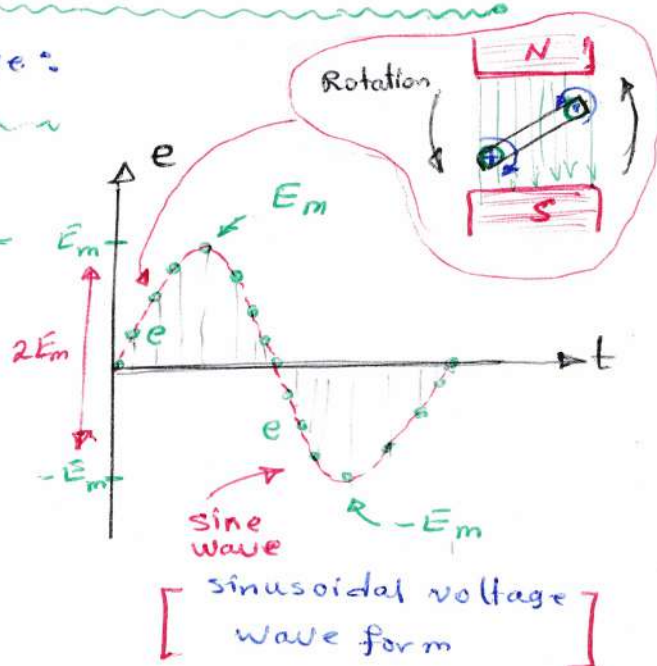 e:
Rotation
N
S
e
Em
Em
2Em
e
t
e
-Em
-Em
sine
wave
[ sinusoidal voltage
wave form ]